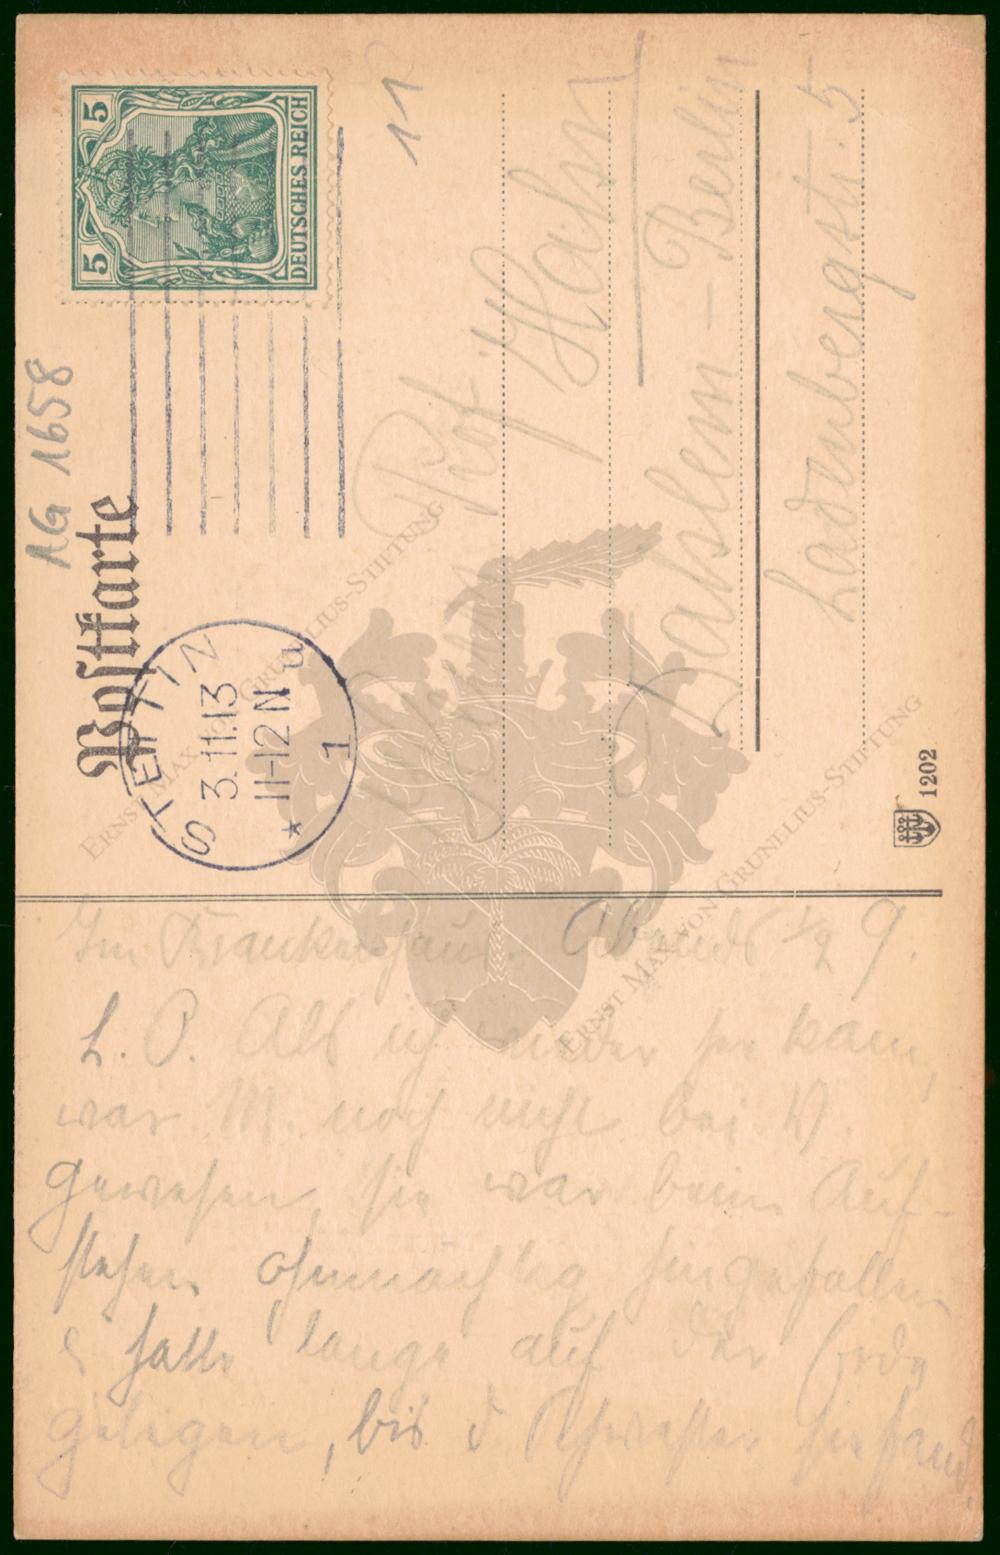 AG 1658
11
Postkarte
DEUTSCHES REICH
5 5
STETTIN
3.11.13
11-12 N
* 1 u
Prof Hahn
Dahlem - Berlin
Ladenbergstr. 5
1202
ERNST MAX VON GRUNELIUS-STIFTUNG
ERNST MAX VON GRUNELIUS-STIFTUNG
Im Krankenhaus. Abends ½ 9.
L. P. Als ich wieder her kam,
war M. noch nicht bei W.
gewesen, sie war beim Auf-
stehen ohnmächtig hingefallen
& hatte lange auf der Erde
gelegen, bis d Schwester sie fand.